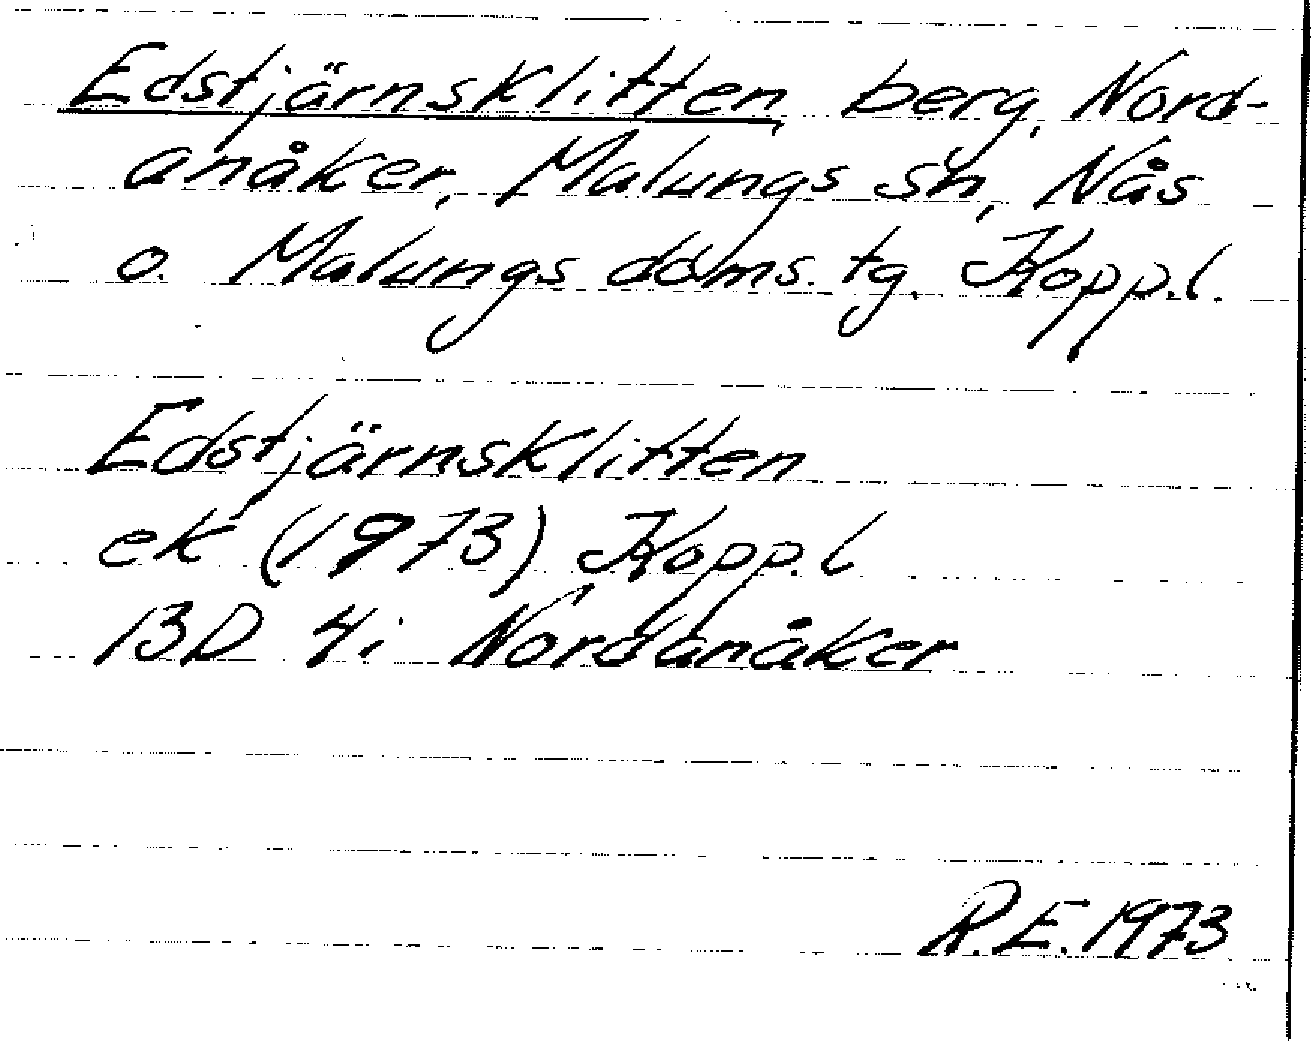 Edstjärnsklitten, berg, Nord-
anåker, Malungs sn, Nås
o. Malungs doms. tg. Kopp.l.
Edstjärnsklitten
ek (1973) Kopp.l
13D 4i Nordanåker
R.E. 1973